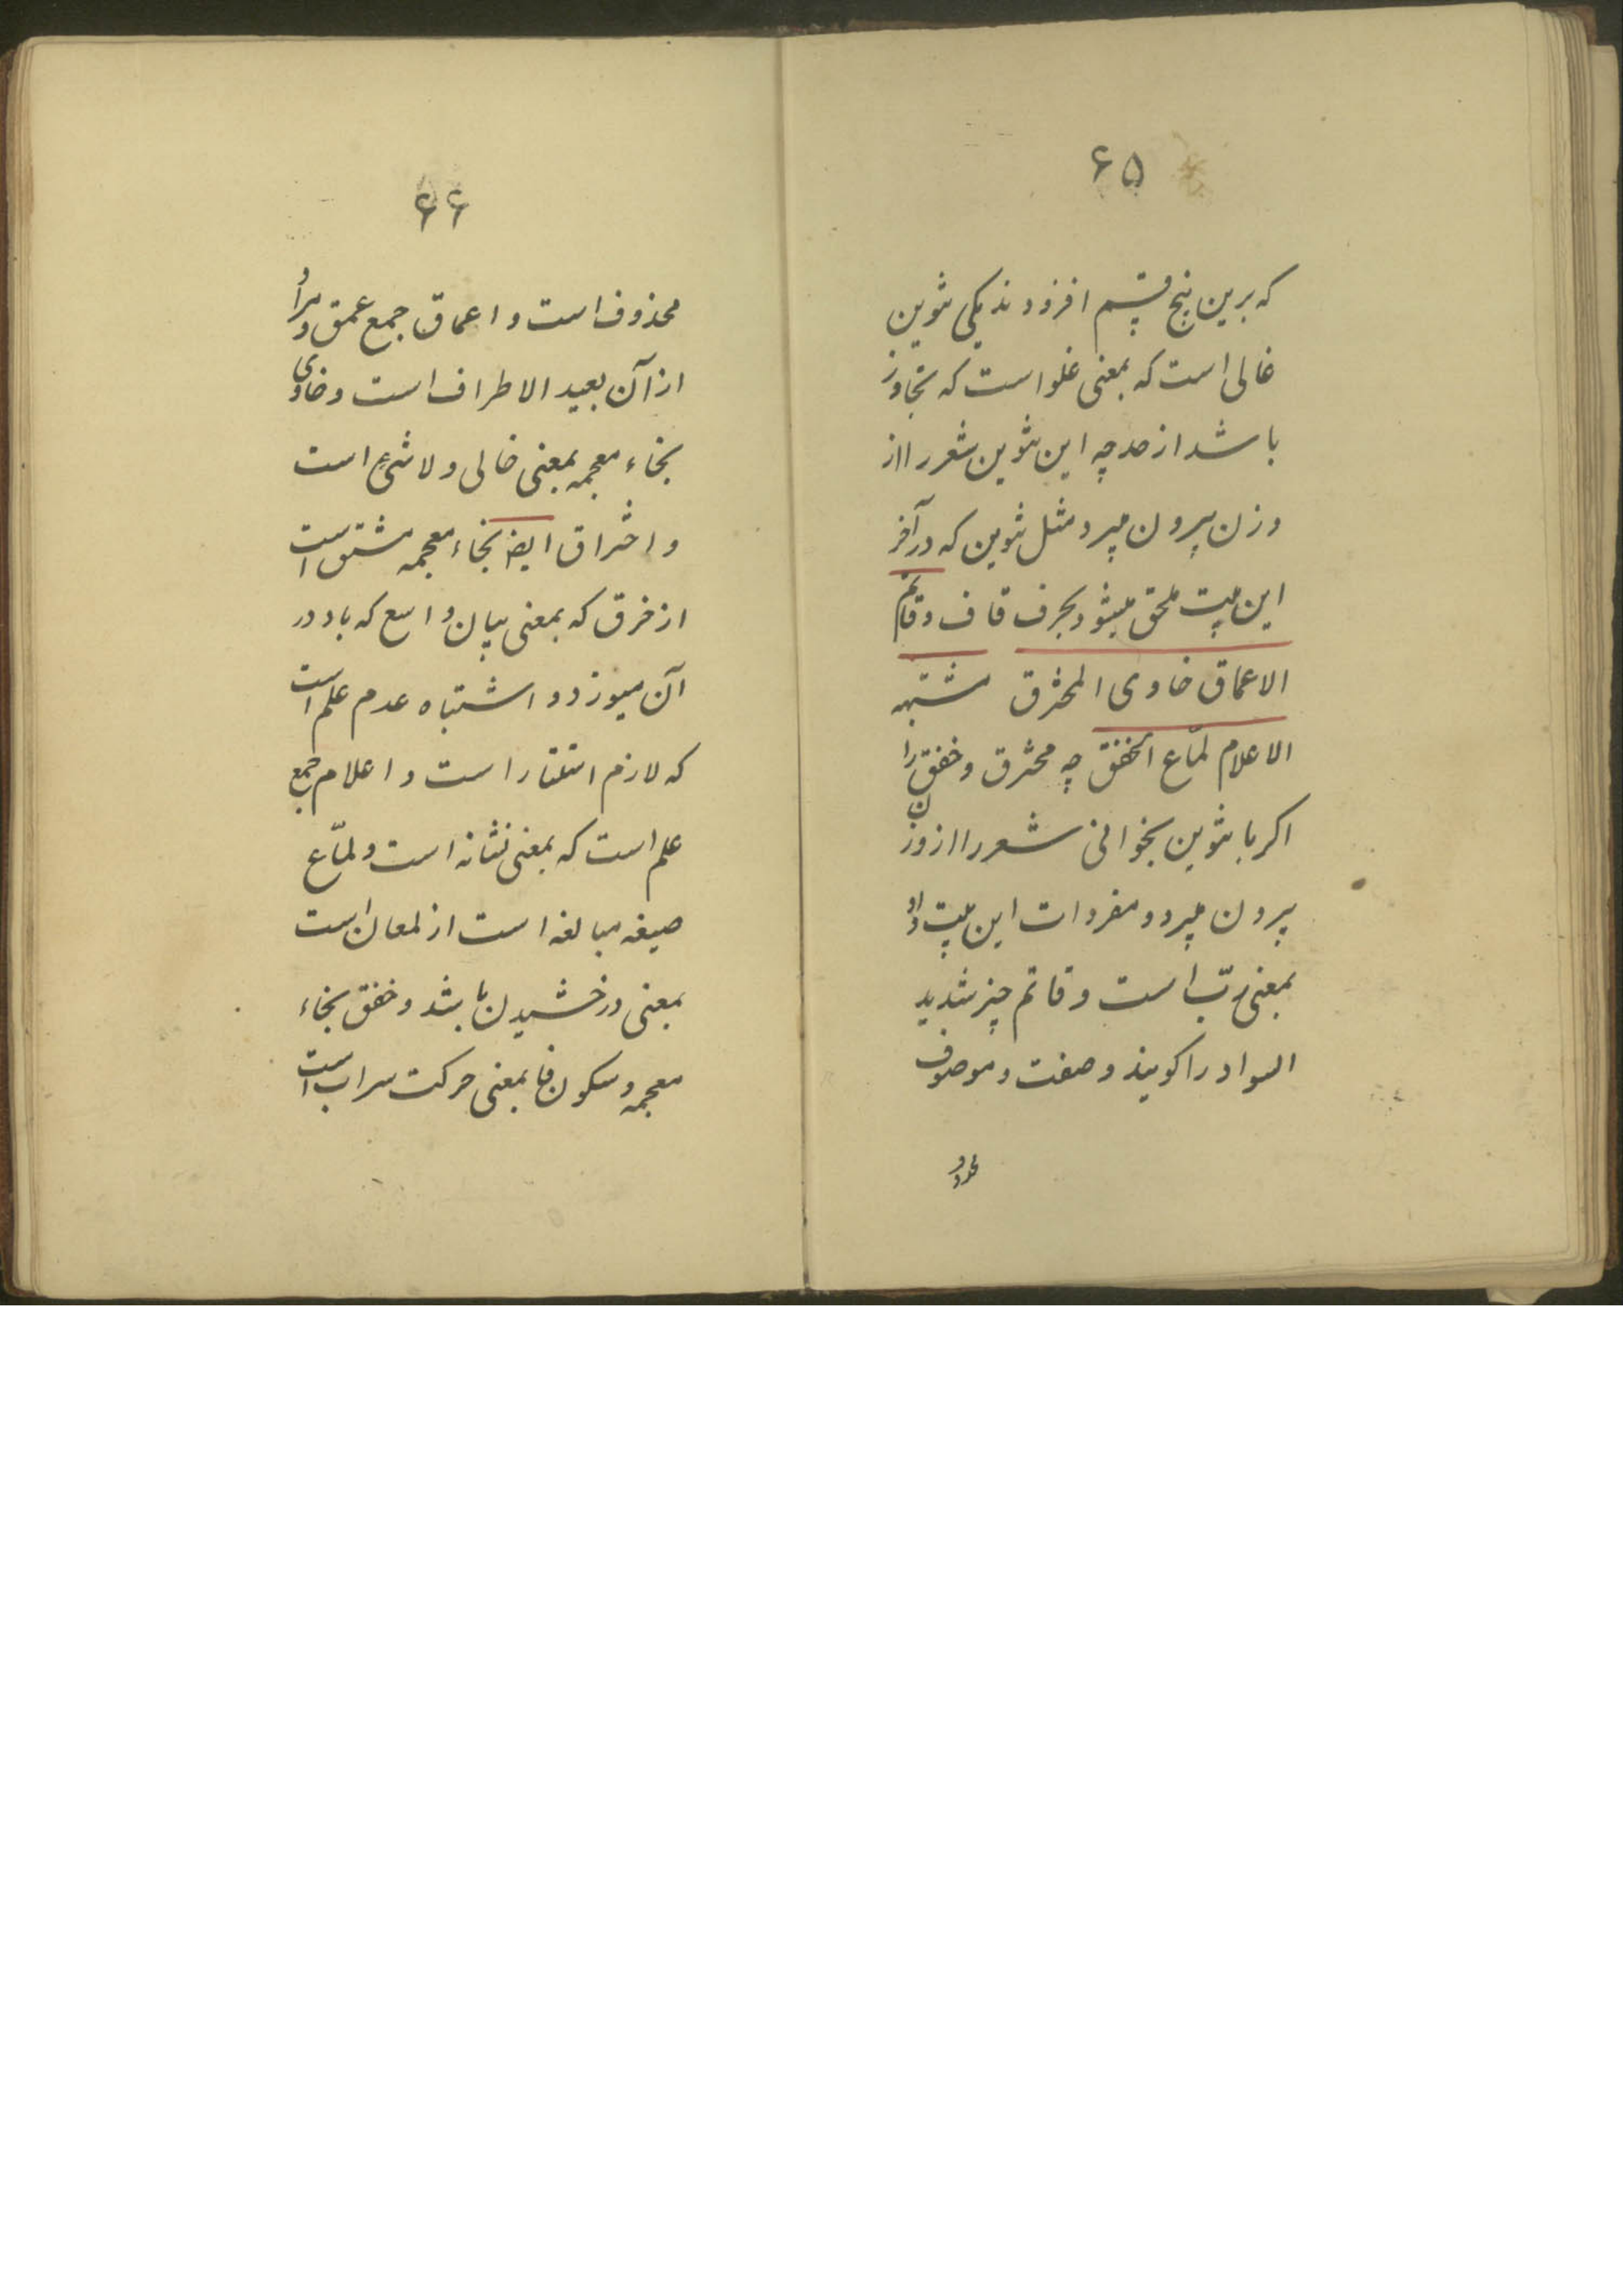 ۶۵
که برین پنج قسم افزودند یکی تنوین
غالی است که بمعنی غلو است که تجاوز
باشد از حد چه این تنوین شعر را از
وزن بیرون میبرد مثل تنوین که در آخر
این بیت ملحق میشود بحرف قاف وقاتم
الاعماق خاوی المخترق مشتبه
الاعلام لمّاع الخفق چه مخترق و خفق را
اکر با تنوین بخوانی شعر را از وزن
بیرون میبرد و مفردات این بیت واو
بمعنی ربّ است و قاتم چیز شدید
السواد را کویند و صفت و موصوف
۶۶
محذوف است و اعماق جمع عمق و مراد
از آن بعید الاطراف است و خاوی
بخاء معجمه بمعنی خالی و لا شیء است
و اختراق ایض بخاء معجمه مشتق است
از خرق که بمعنی بیابان واسع که باد در
آن میوزد و اشتباه عدم علم است
که لازم استتار است و اعلام جمع
علم است که بمعنی نشانه است و لمّاع
صیغه مبالغه است از لمعان است
بمعنی درخشیدن باشد و خفق بخاء
معجمه و سکون فا بمعنی حرکت سراب است